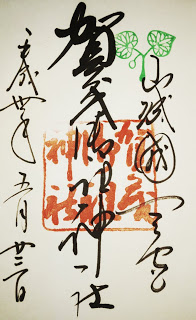 山城國一宮
賀茂御祖神社
平成 年 五月 日
賀茂
御祖
神社